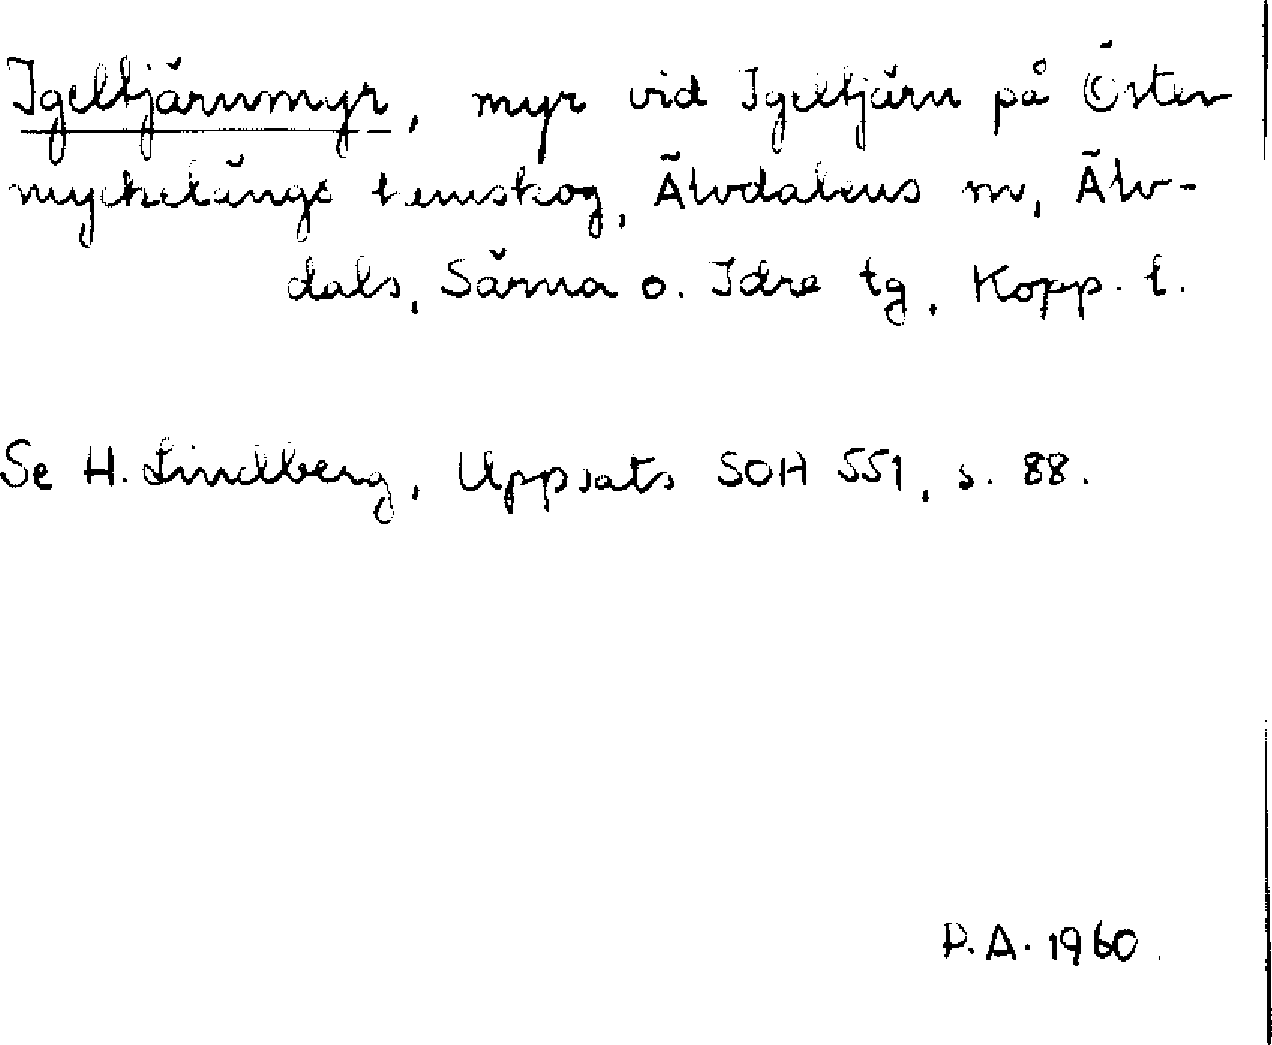 Igeltjärnmyr, myr vid Igeltjärn på Öster
myckelängs lemskog, Älvdalens sn, Älv-
dals, Särna o. Idre tg, Kopp. l.
Se H. Lindberg, Uppsats SOH 551, s. 88.
P.A. 1960.